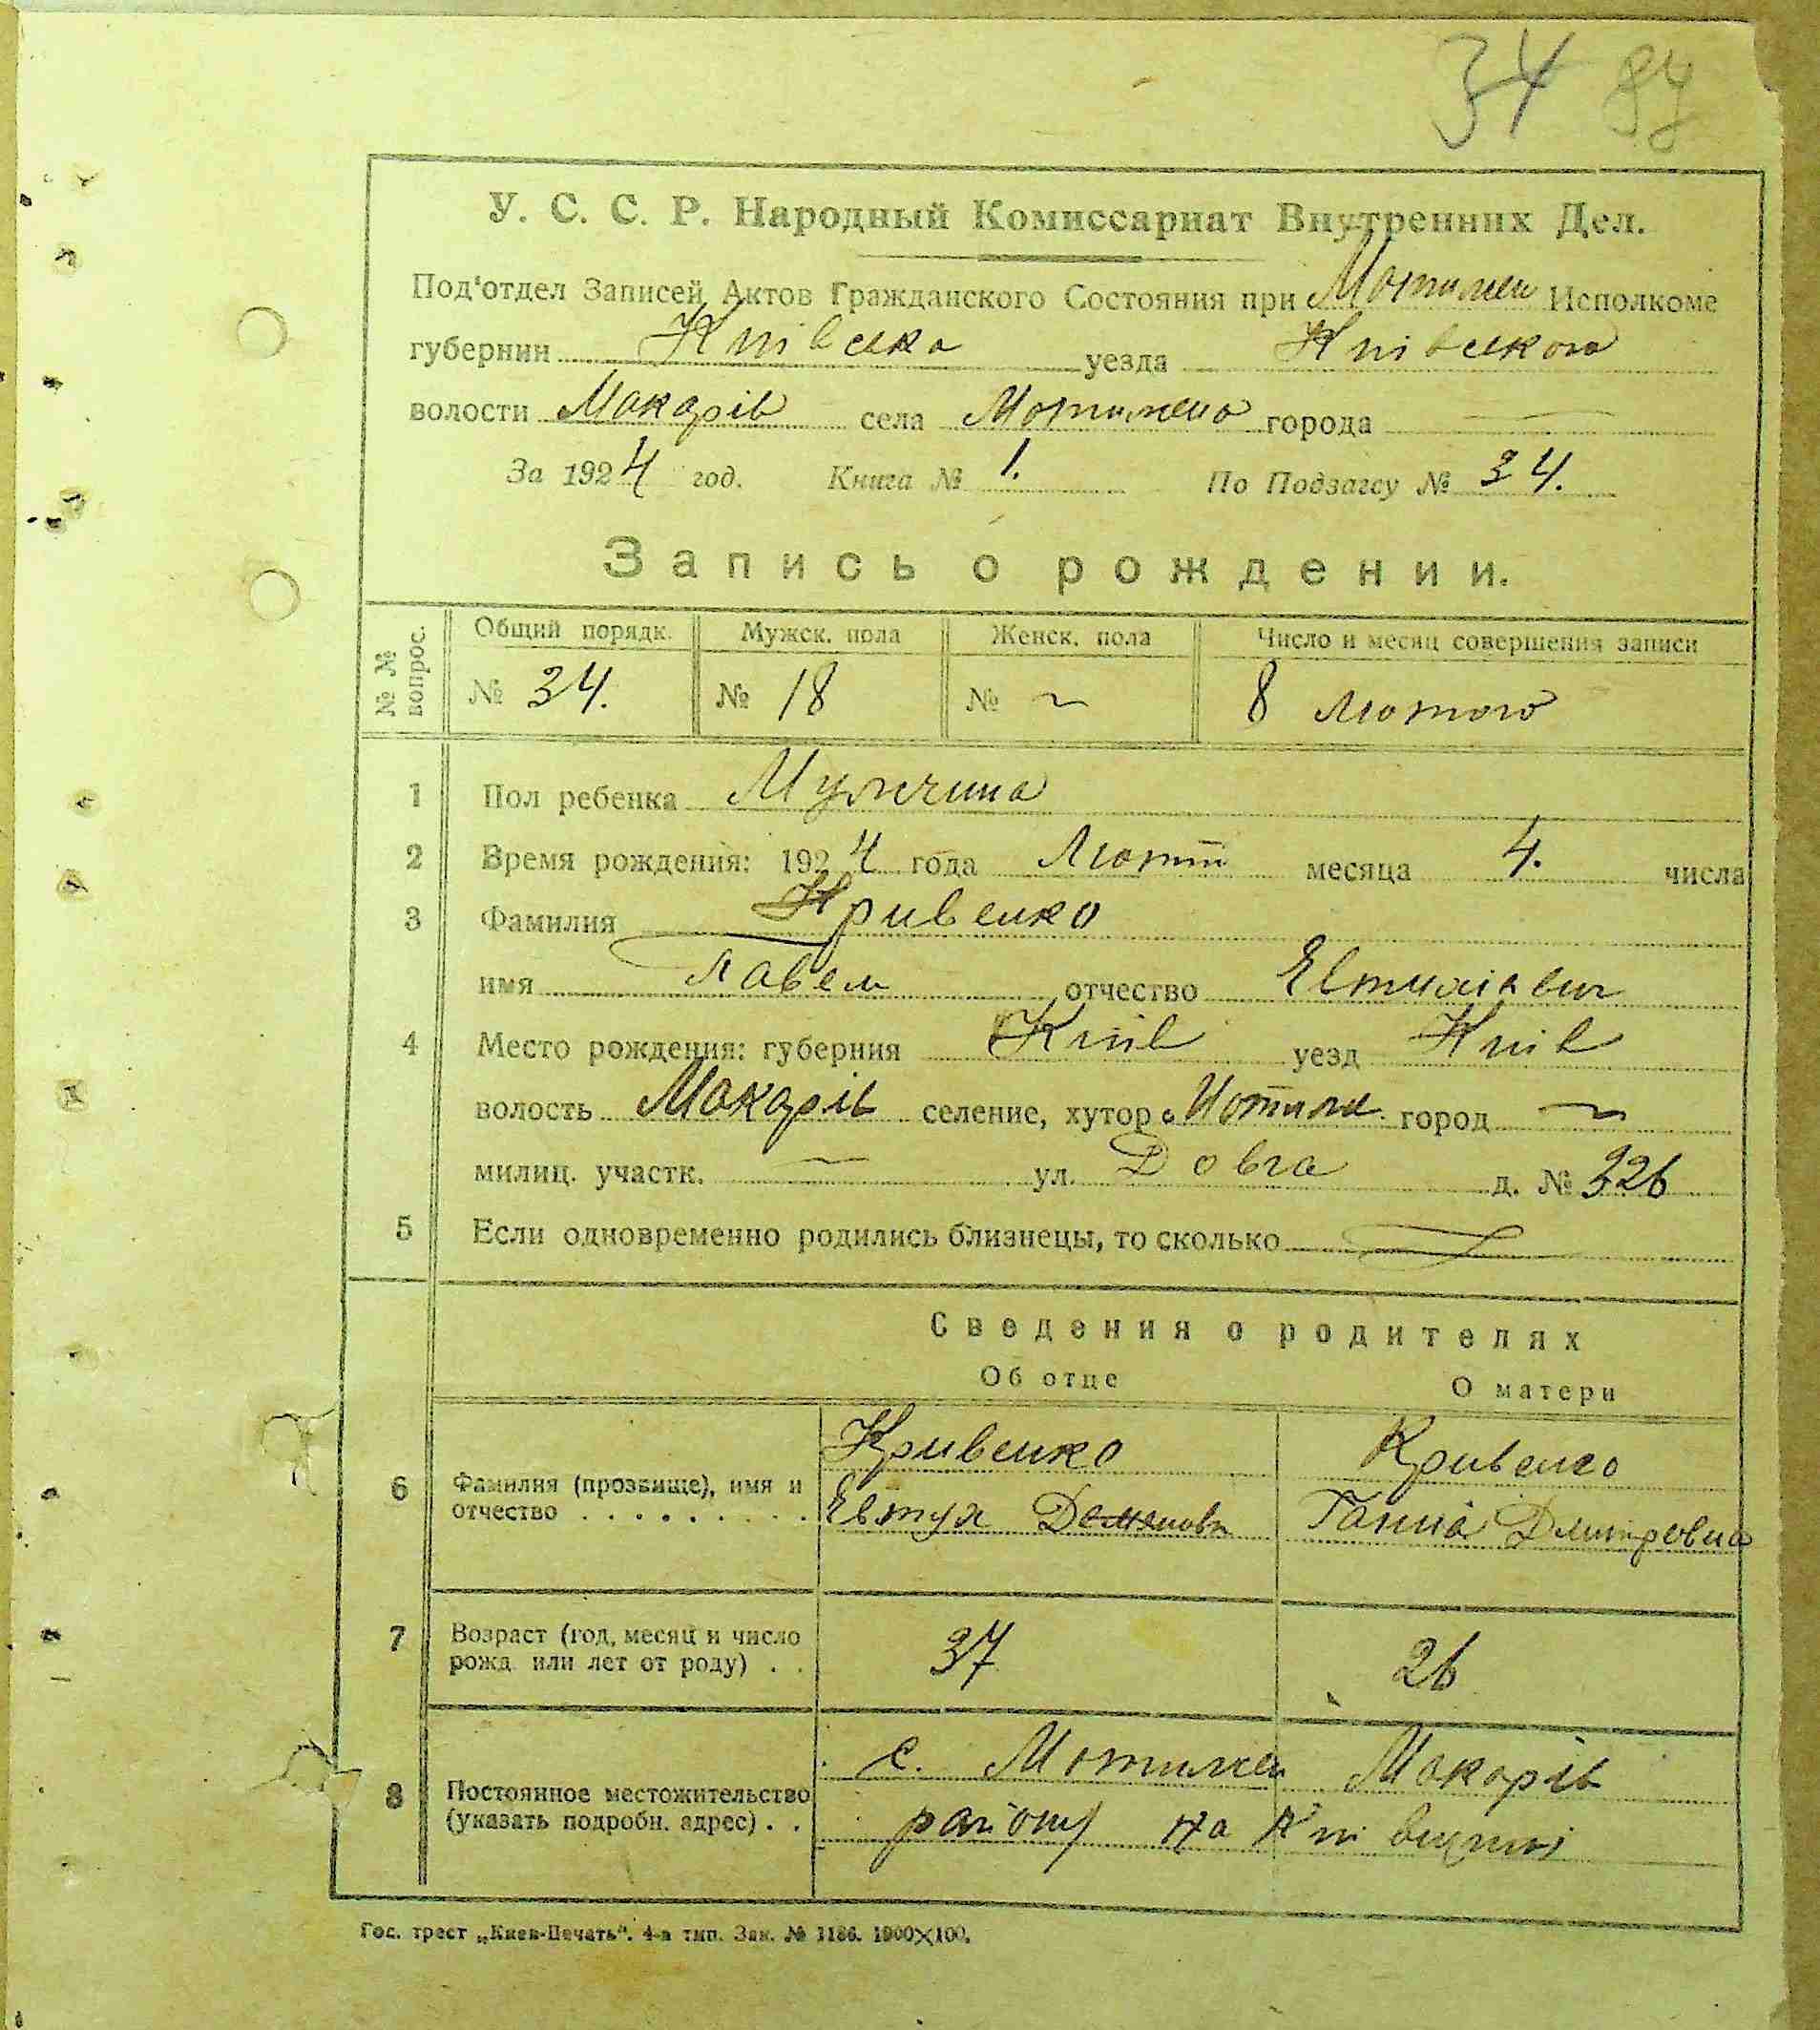 34 87
У. С. С. Р. Народный Комиссариат Внутренних Дел.
Под'отдел Записей Актов Гражданского Состояния при Мотижен Исполкоме
губернии Київська уезда Київського
волости Макарів села Мотижено города —
За 1924 год. Книга № 1. По Подзагсу № 34.
Запись о рождении.
№ № вопрос. Общий порядк. Мужск. пола Женск. пола Число и месяц совершения записи
№ 34. № 18 № ~ 8 лютого
1 Пол ребенка Мужчина
2 Время рождения: 1924 года Лютий месяца 4. числа
3 Фамилия Кривенко
имя Павел отчество
4 Место рождения: губерния Київ уезд Київ
волость Макарів селение, хутор город ~
милиц. участк. — ул. Довга д. № 326
5 Если одновременно родились близнецы, то сколько —
Сведения о родителях
Об отце О матери
Кривенко Кривенко
6 Фамилия (прозвище), имя и
отчество . . . . . . . . . . Евтух Демянов Ганна Дмитровна
7 Возраст (год, месяц и число
рожд. или лет от роду) . . 37 26
с. Мотижен Макарів
8 Постоянное местожительство
(указать подробн. адрес) . . району на Київщині
Гос. трест „Киев-Печать“. 4-я тип. Зак. № 1186. 1900×100.